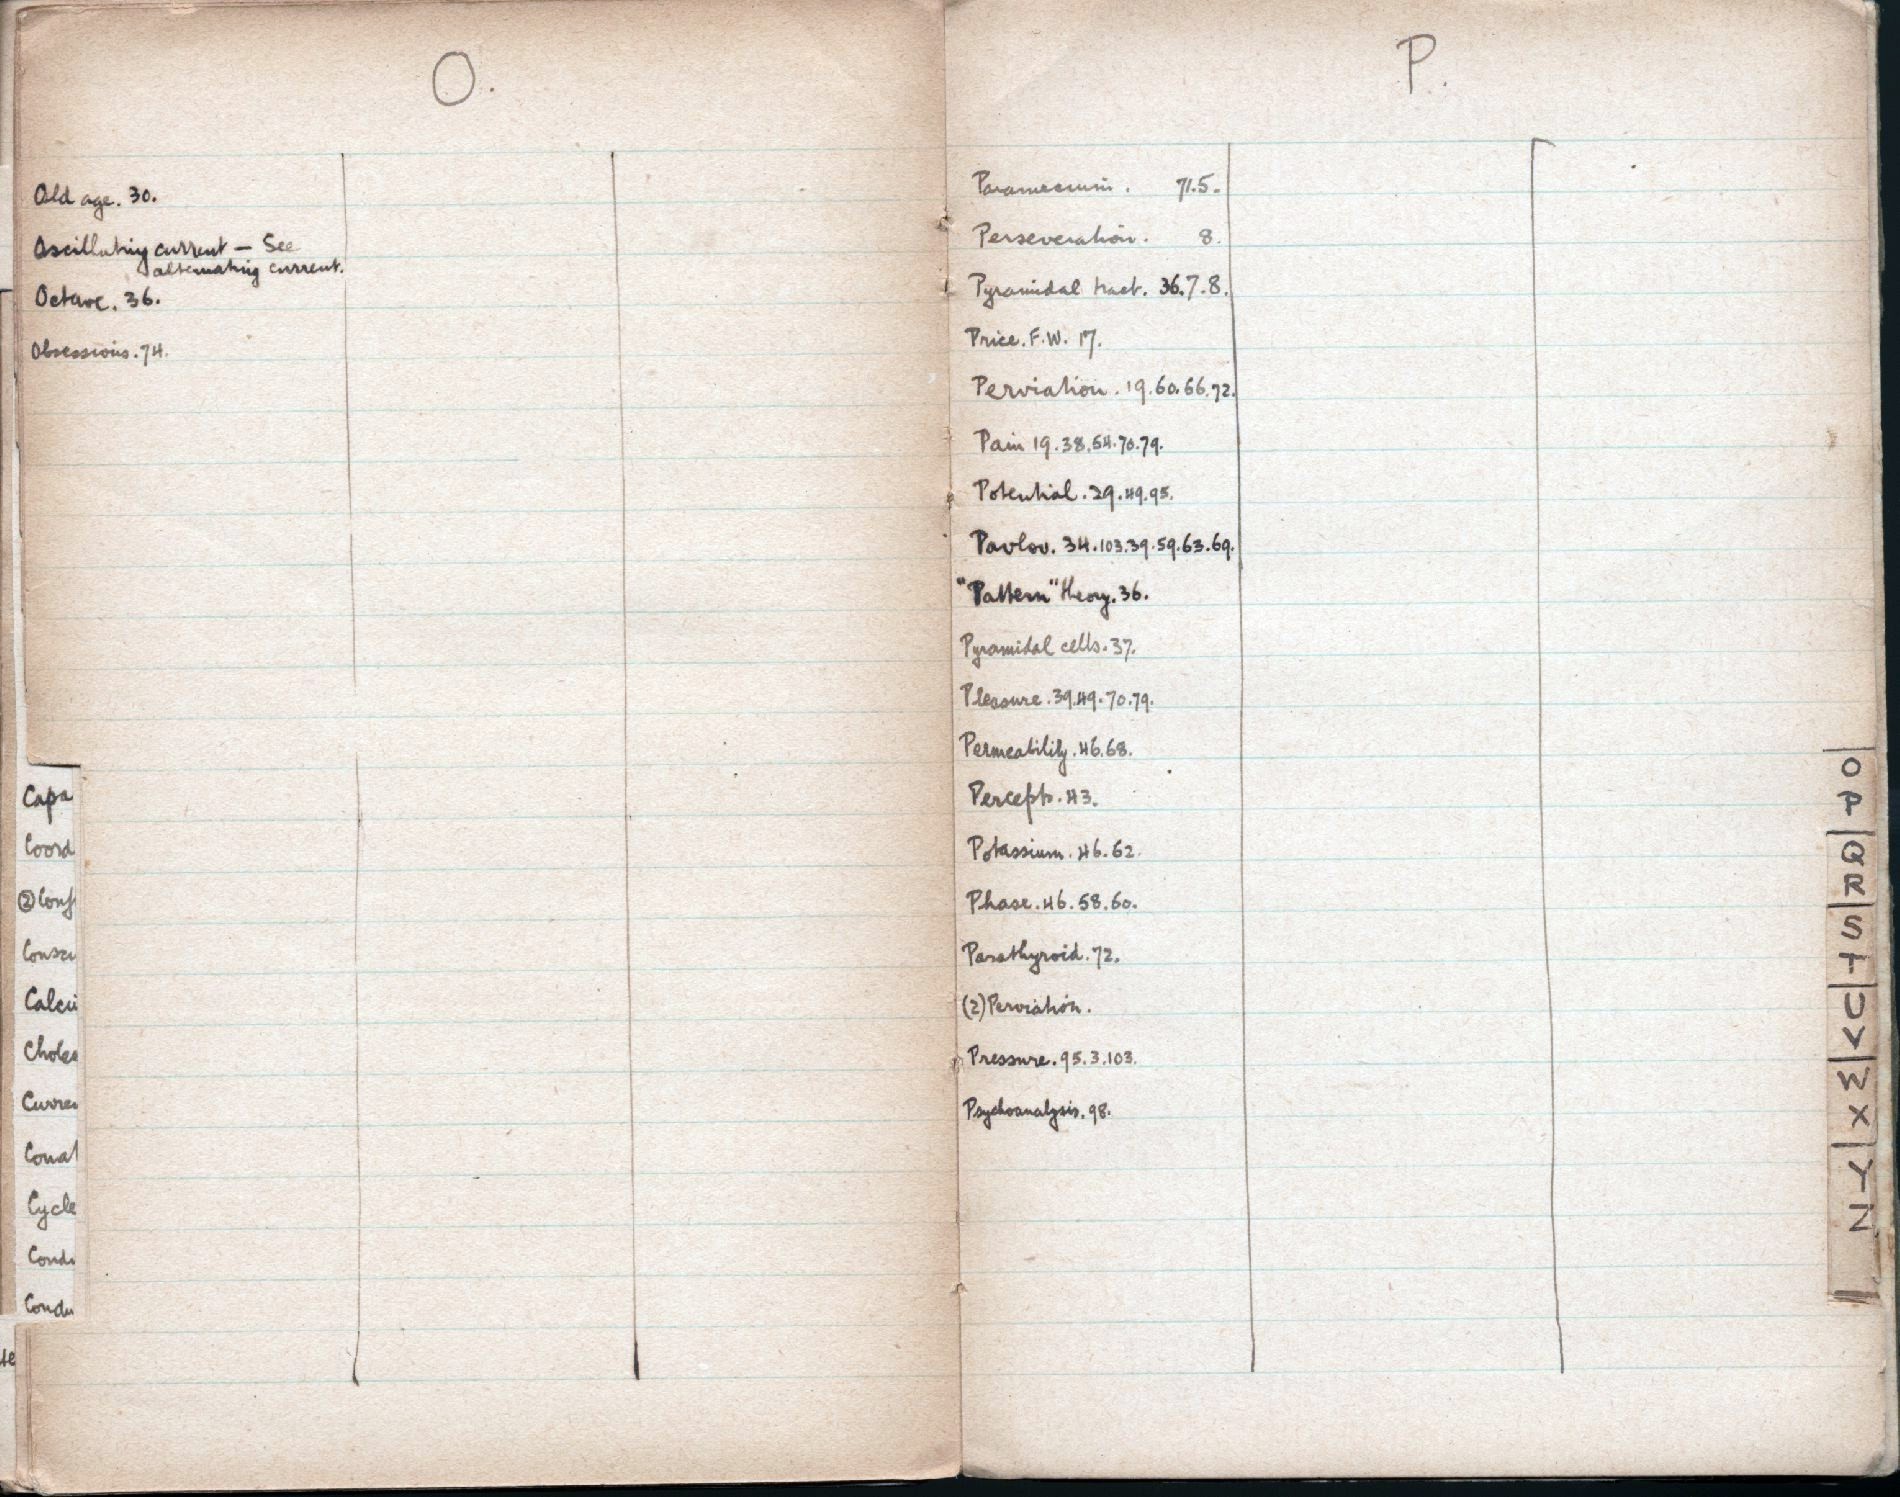 O.
Old age. 30.
Oscillating current — See
alternating current.
Octave. 36.
Obsessions. 74.
Capa
Coord
② Conf
Consci
Calci
Choles
Curren
Conat
Cycle
Condi
Condu
te
P.
Paramecium. 71.5.
Perseveration. 8.
Pyramidal tract. 36.7.8.
Price. F.W. 17.
Perviation. 19.60.66.72.
Pain 19.38.54.70.79.
Potential. 29.49.95.
Pavlov. 34.103.39.59.63.69.
"Pattern" theory. 36.
Pyramidal cells. 37.
Pleasure. 39.49.70.79.
Permeability. 46.68.
Percepts. 43.
Potassium. 46.62.
Phase. 46.58.60.
Parathyroid. 72.
(2) Perviation.
Pressure. 95.3.103.
Psychoanalysis. 98.
O
P
Q
R
S
T
U
V
W
X
Y
Z